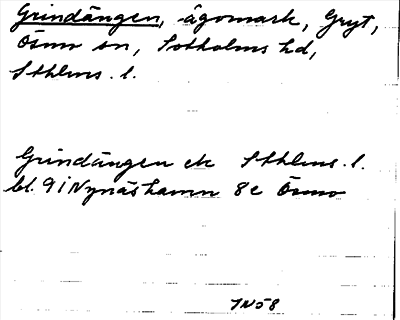 Grindängen, ägomark, Gryt,
Ösmo sn, Sotholms hd,
Sthlms. l.
Grindängen ek Sthlms. l.
bl. 9 I Nynäshamn 8 e Ösmo
IN58